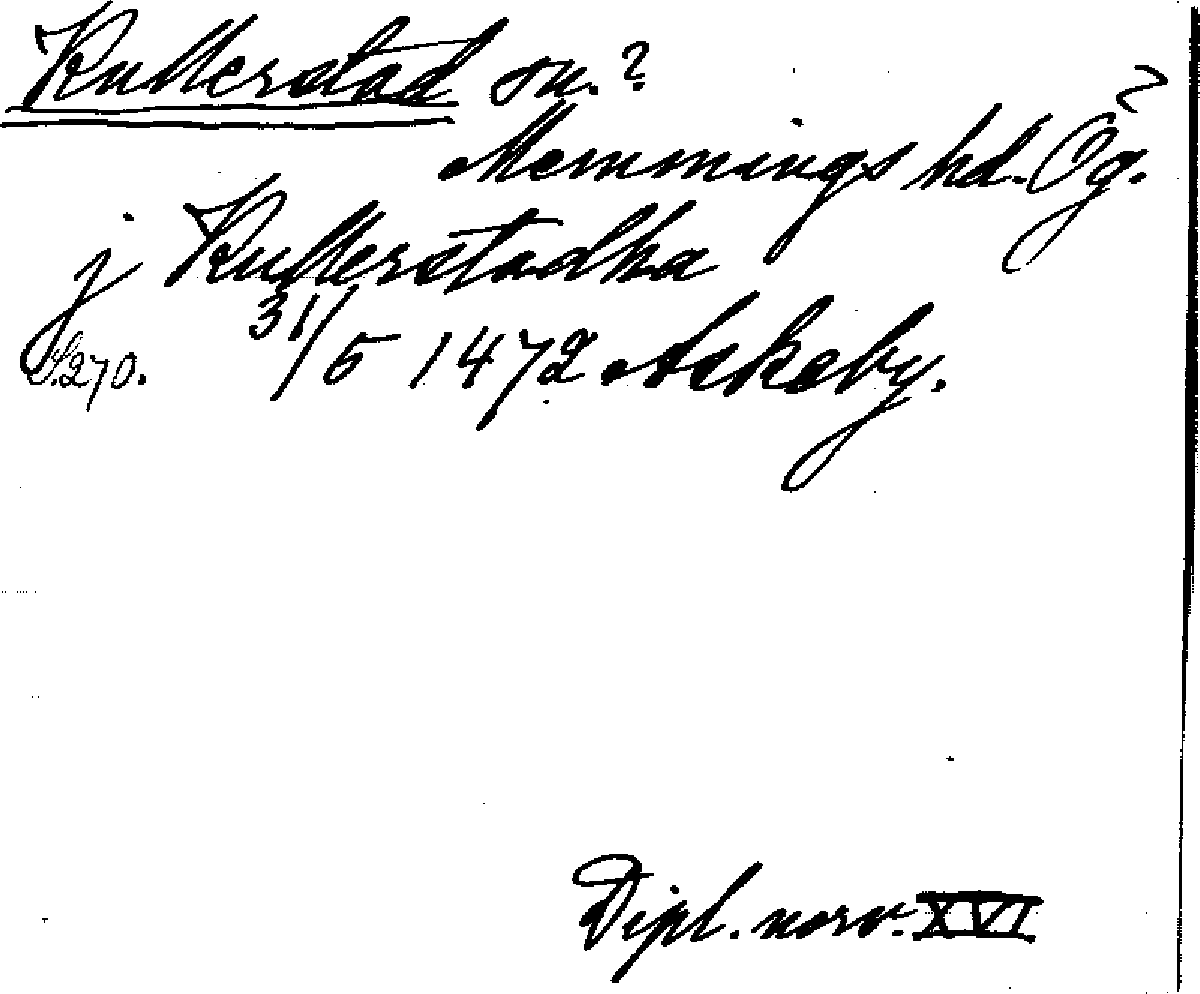 Kullerstad sn.?
Memmings hd. Ög.
j Kullerstadha
S. 270. 31/5 1472 Askeby.
Dipl. norv. XVI